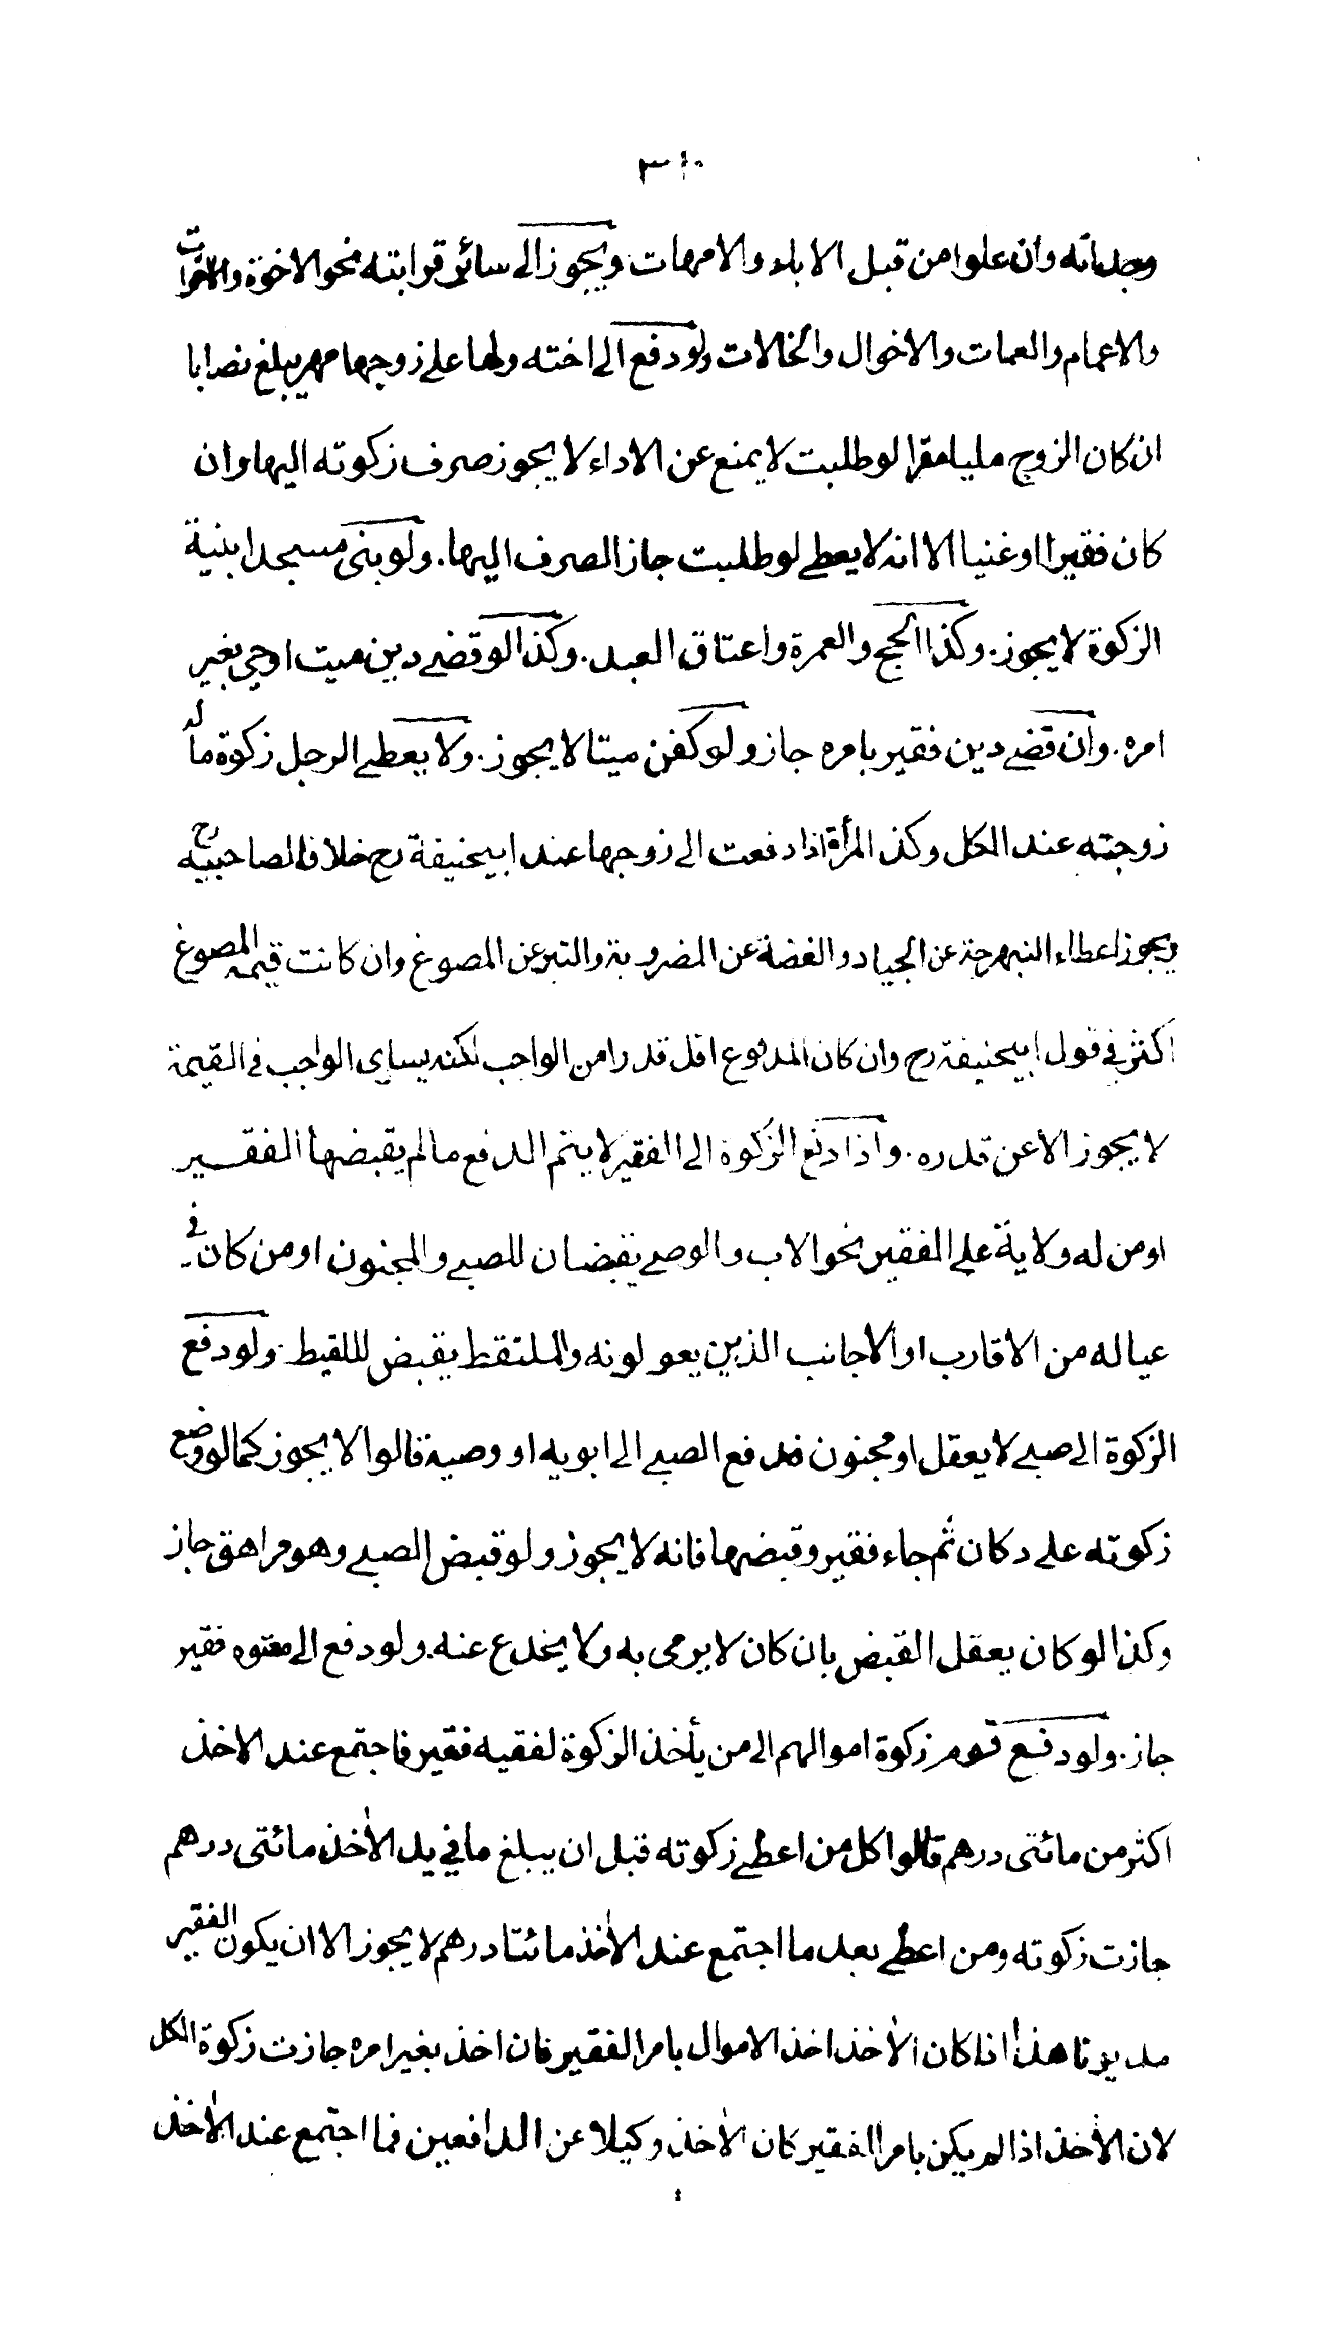 وجداته وان علوا من قبل الاباء والامهات ويجوز الى سائر قرابته نحو الاخوة والاخوات
والاعمام والعمات والاخوال والخالات ولو دفع الى اخته ولها على زوجها مهر يبلغ نصابا
ان كان الزوج مليا مقرا لو طلبت لا يمنع عن الاداء لا يجوز صرف زكوته اليها وان
كان فقيرا او غنيا الا انه لا يعطى لو طلبت جاز الصرف اليها. ولو بنى مسجدا بنية
الزكوة لا يجوز. وكذا الحج والعمرة واعتاق العبد. وكذا لو قضى دين ميت او حي بغير
امره. وان قضى دين فقير بامره جاز ولو كفن ميتا لا يجوز. ولا يعطى الرجل زكوة ماله
زوجته عند الكل وكذ المرأة اذا دفعت الى زوجها عند ابيحنيفة رح خلافا لصاحبيه رح
ويجوز اعطاء النبهرجة عن الجياد والفضة عن المضروبة والتبر عن المصوغ وان كانت قيمة المصوغ
اكثر في قول ابيحنيفة رح وان كان المدفوع اقل قدرا من الواجب لكنه يساوى الواجب فى القيمة
لا يجوز الا عن قدره. واذا دفع الزكوة الى الفقير لا يتم الدفع ما لم يقبضها الفقير
او من له ولاية على الفقير نحو الاب والوصى يقبضان للصبى والمجنون او من كان في
عياله من الاقارب او الاجانب الذين يعولونه والملتقط يقبض للقيط. ولو دفع
الزكوة الى صبى لا يعقل او مجنون فدفع الصبى الى ابويه او وصية قالوا لا يجوز كما لو وضع
زكوته على دكان ثم جاء فقير وقبضها فانه لا يجوز ولو قبض الصبى وهو مراهق جاز
وكذا لو كان يعقل القبض بان كان لا يرمى به ولا يخدع عنه. ولو دفع الى معتوه فقير
جاز. ولو دفع قوم زكوة اموالهم الى من يأخذ الزكوة لفقيه فقير فاجتمع عند الاخذ
اكثر من مائتى درهم قالوا كل من اعطى زكوته قبل ان يبلغ ما في يد الأخذ مائتى درهم
جازت زكوته ومن اعطى بعد ما اجتمع عند الأخذ مائتا درهم لا يجوز الا ان يكون الفقير
مديونا هذا اذا كان الأخذ اخذ الاموال بامر الفقير فان اخذ بغير امره جازت زكوة الكل
لان الأخذ اذا لم يكن بامر الفقير كان الأخذ وكيلا عن الدافعين فما اجتمع عند الأخذ